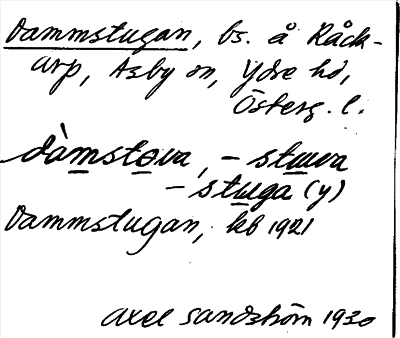 Dammstugan, bs. å Råck-
arp, Asby sn, Ydre hd,
Österg. l.
dàmstova, - stuva
- stuga (y)
Dammstugan, kb 1921
Axel Sandström 1930